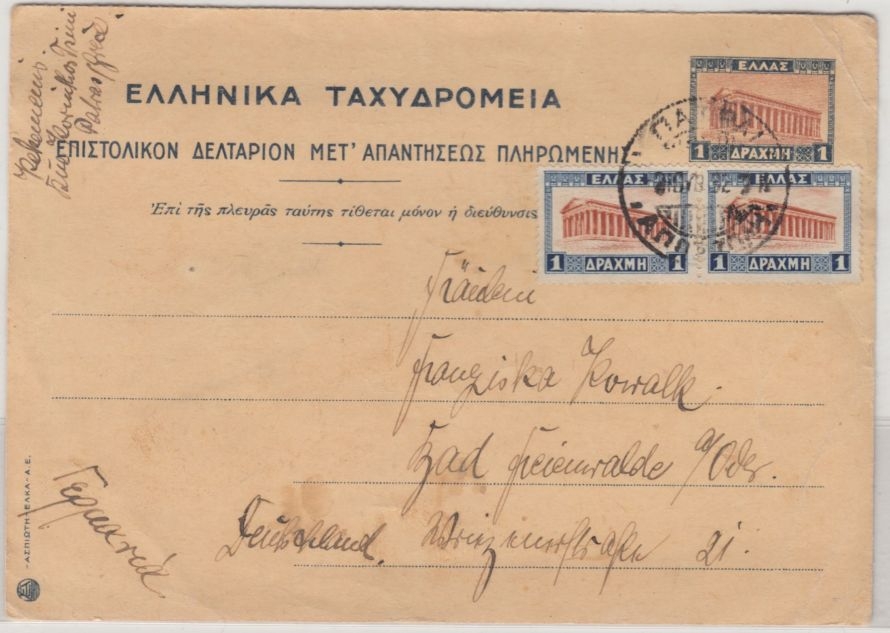 ΕΛΛΗΝΙΚΑ ΤΑΧΥΔΡΟΜΕΙΑ
ΕΠΙΣΤΟΛΙΚΟΝ ΔΕΛΤΑΡΙΟΝ ΜΕΤ' ΑΠΑΝΤΗΣΕΩΣ ΠΛΗΡΩΜΕΝΗΣ
Ἐπὶ τῆς πλευρᾶς ταύτης τίθεται μόνον ἡ διεύθυνσις
ΕΛΛΑΣ
1 ΔΡΑΧΜΗ 1
ΕΛΛΑΣ
1 ΔΡΑΧΜΗ 1
ΕΛΛΑΣ
1 ΔΡΑΧΜΗ 1
Patras
Fräulein
Franziska Kowalk.
Bad Freienwalde a/Oder.
Deutschland. Wriezenerstraße 21.
Γερμανιά.
"ΑΣΠΙΩΤΗ-ΕΛΚΑ" Α.Ε.